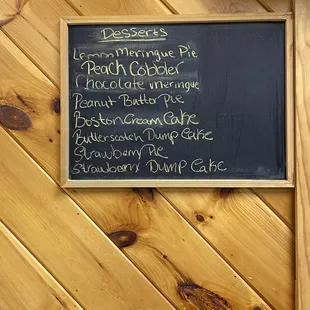 Desserts
Lemon Meringue Pie
Peach Cobbler
Chocolate Meringue
Peanut Butter Pie
Boston Cream Cake
Butterscotch Dump Cake
Strawberry Pie
Strawberry Dump Cake